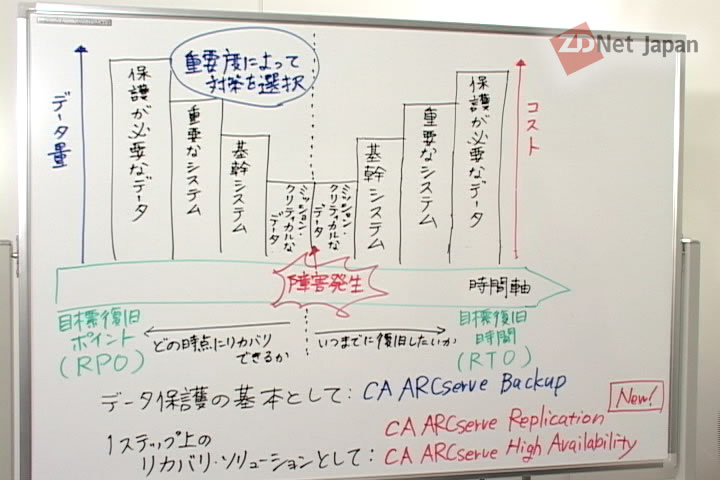 ZDNet Japan
重要度によって
対策を選択
データ量
保護が必要なデータ
重要なシステム
基幹システム
ミッション・
クリティカルな
データ
ミッション・
クリティカルな
データ
基幹システム
重要なシステム
保護が必要なデータ
コスト
障害発生
時間軸
目標復旧
ポイント
(RPO)
どの時点にリカバリ
できるか
いつまでに復旧したいか
目標復旧
時間
(RTO)
データ保護の基本として：CA ARCserve Backup
New!
CA ARCserve Replication
1ステップ上の
リカバリ・ソリューションとして：CA ARCserve High Availability